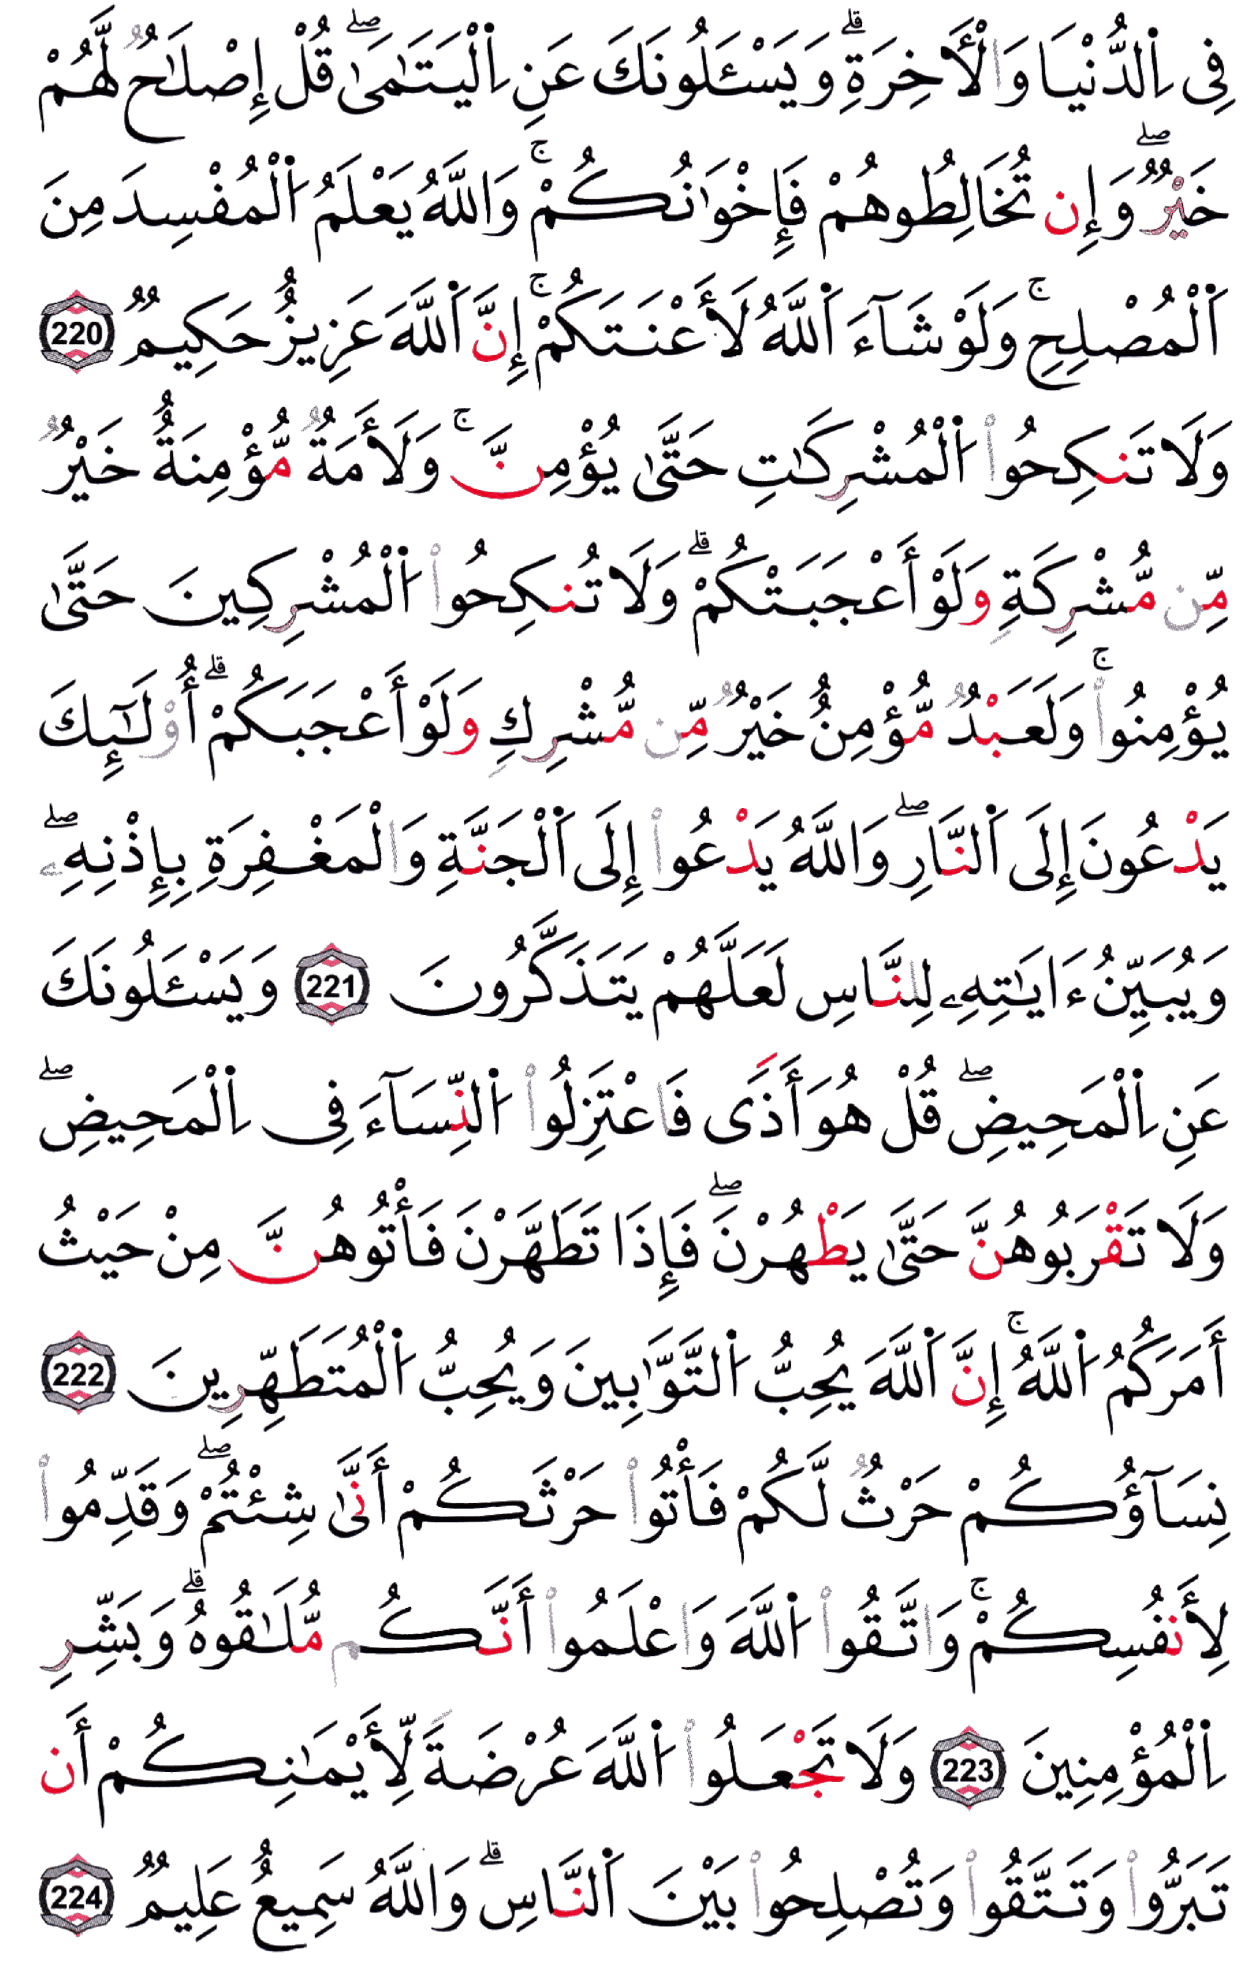 فِي اِ۬لدُّنْيَا وَالْأَخِرَةِۗ وَيَسْـَٔلُونَكَ عَنِ اِ۬لْيَتَٰمَىٰۖ قُلْ إِصْلَٰحٌ لَّهُمْ
خَيْرٌۖ وَإِن تُخَالِطُوهُمْ فَإِخْوَٰنُكُمْۚ وَاللَّهُ يَعْلَمُ اَ۬لْمُفْسِدَ مِنَ
اَ۬لْمُصْلِحِۚ وَلَوْ شَآءَ اَ۬للَّهُ لَأَعْنَتَكُمْۚ إِنَّ اَ۬للَّهَ عَزِيزٌ حَكِيمٌ 220
وَلَا تَنكِحُواْ اُ۬لْمُشْرِكَٰتِ حَتَّىٰ يُؤْمِنَّۚ وَلَأَمَةٌ مُّؤْمِنَةٌ خَيْرٌ
مِّن مُّشْرِكَةٍ وَلَوْ أَعْجَبَتْكُمْۗ وَلَا تُنكِحُواْ اُ۬لْمُشْرِكِينَ حَتَّىٰ
يُؤْمِنُواْۚ وَلَعَبْدٌ مُّؤْمِنٌ خَيْرٌ مِّن مُّشْرِكٍ وَلَوْ أَعْجَبَكُمْۗ أُوْلَٰٓئِكَ
يَدْعُونَ إِلَى اَ۬لنَّارِۖ وَاللَّهُ يَدْعُواْ إِلَى اَ۬لْجَنَّةِ وَالْمَغْفِرَةِ بِإِذْنِهِۦۖ
وَيُبَيِّنُ ءَايَٰتِهِۦ لِلنَّاسِ لَعَلَّهُمْ يَتَذَكَّرُونَ 221 وَيَسْـَٔلُونَكَ
عَنِ اِ۬لْمَحِيضِۖ قُلْ هُوَ أَذًى فَاعْتَزِلُواْ اُ۬لنِّسَآءَ فِي اِ۬لْمَحِيضِۖ
وَلَا تَقْرَبُوهُنَّ حَتَّىٰ يَطْهُرْنَۖ فَإِذَا تَطَهَّرْنَ فَأْتُوهُنَّ مِنْ حَيْثُ
أَمَرَكُمُ اُ۬للَّهُۚ إِنَّ اَ۬للَّهَ يُحِبُّ اُ۬لتَّوَّٰبِينَ وَيُحِبُّ اُ۬لْمُتَطَهِّرِينَ 222
نِسَآؤُكُمْ حَرْثٌ لَّكُمْ فَأْتُواْ حَرْثَكُمْ أَنَّىٰ شِئْتُمْۖ وَقَدِّمُواْ
لِأَنفُسِكُمْۚ وَاتَّقُواْ اُ۬للَّهَ وَاعْلَمُواْ أَنَّكُم مُّلَٰقُوهُۗ وَبَشِّرِ
اِ۬لْمُؤْمِنِينَ 223 وَلَا تَجْعَلُواْ اُ۬للَّهَ عُرْضَةً لِّأَيْمَٰنِكُمْ أَن
تَبَرُّواْ وَتَتَّقُواْ وَتُصْلِحُواْ بَيْنَ اَ۬لنَّاسِۗ وَاللَّهُ سَمِيعٌ عَلِيمٌ 224